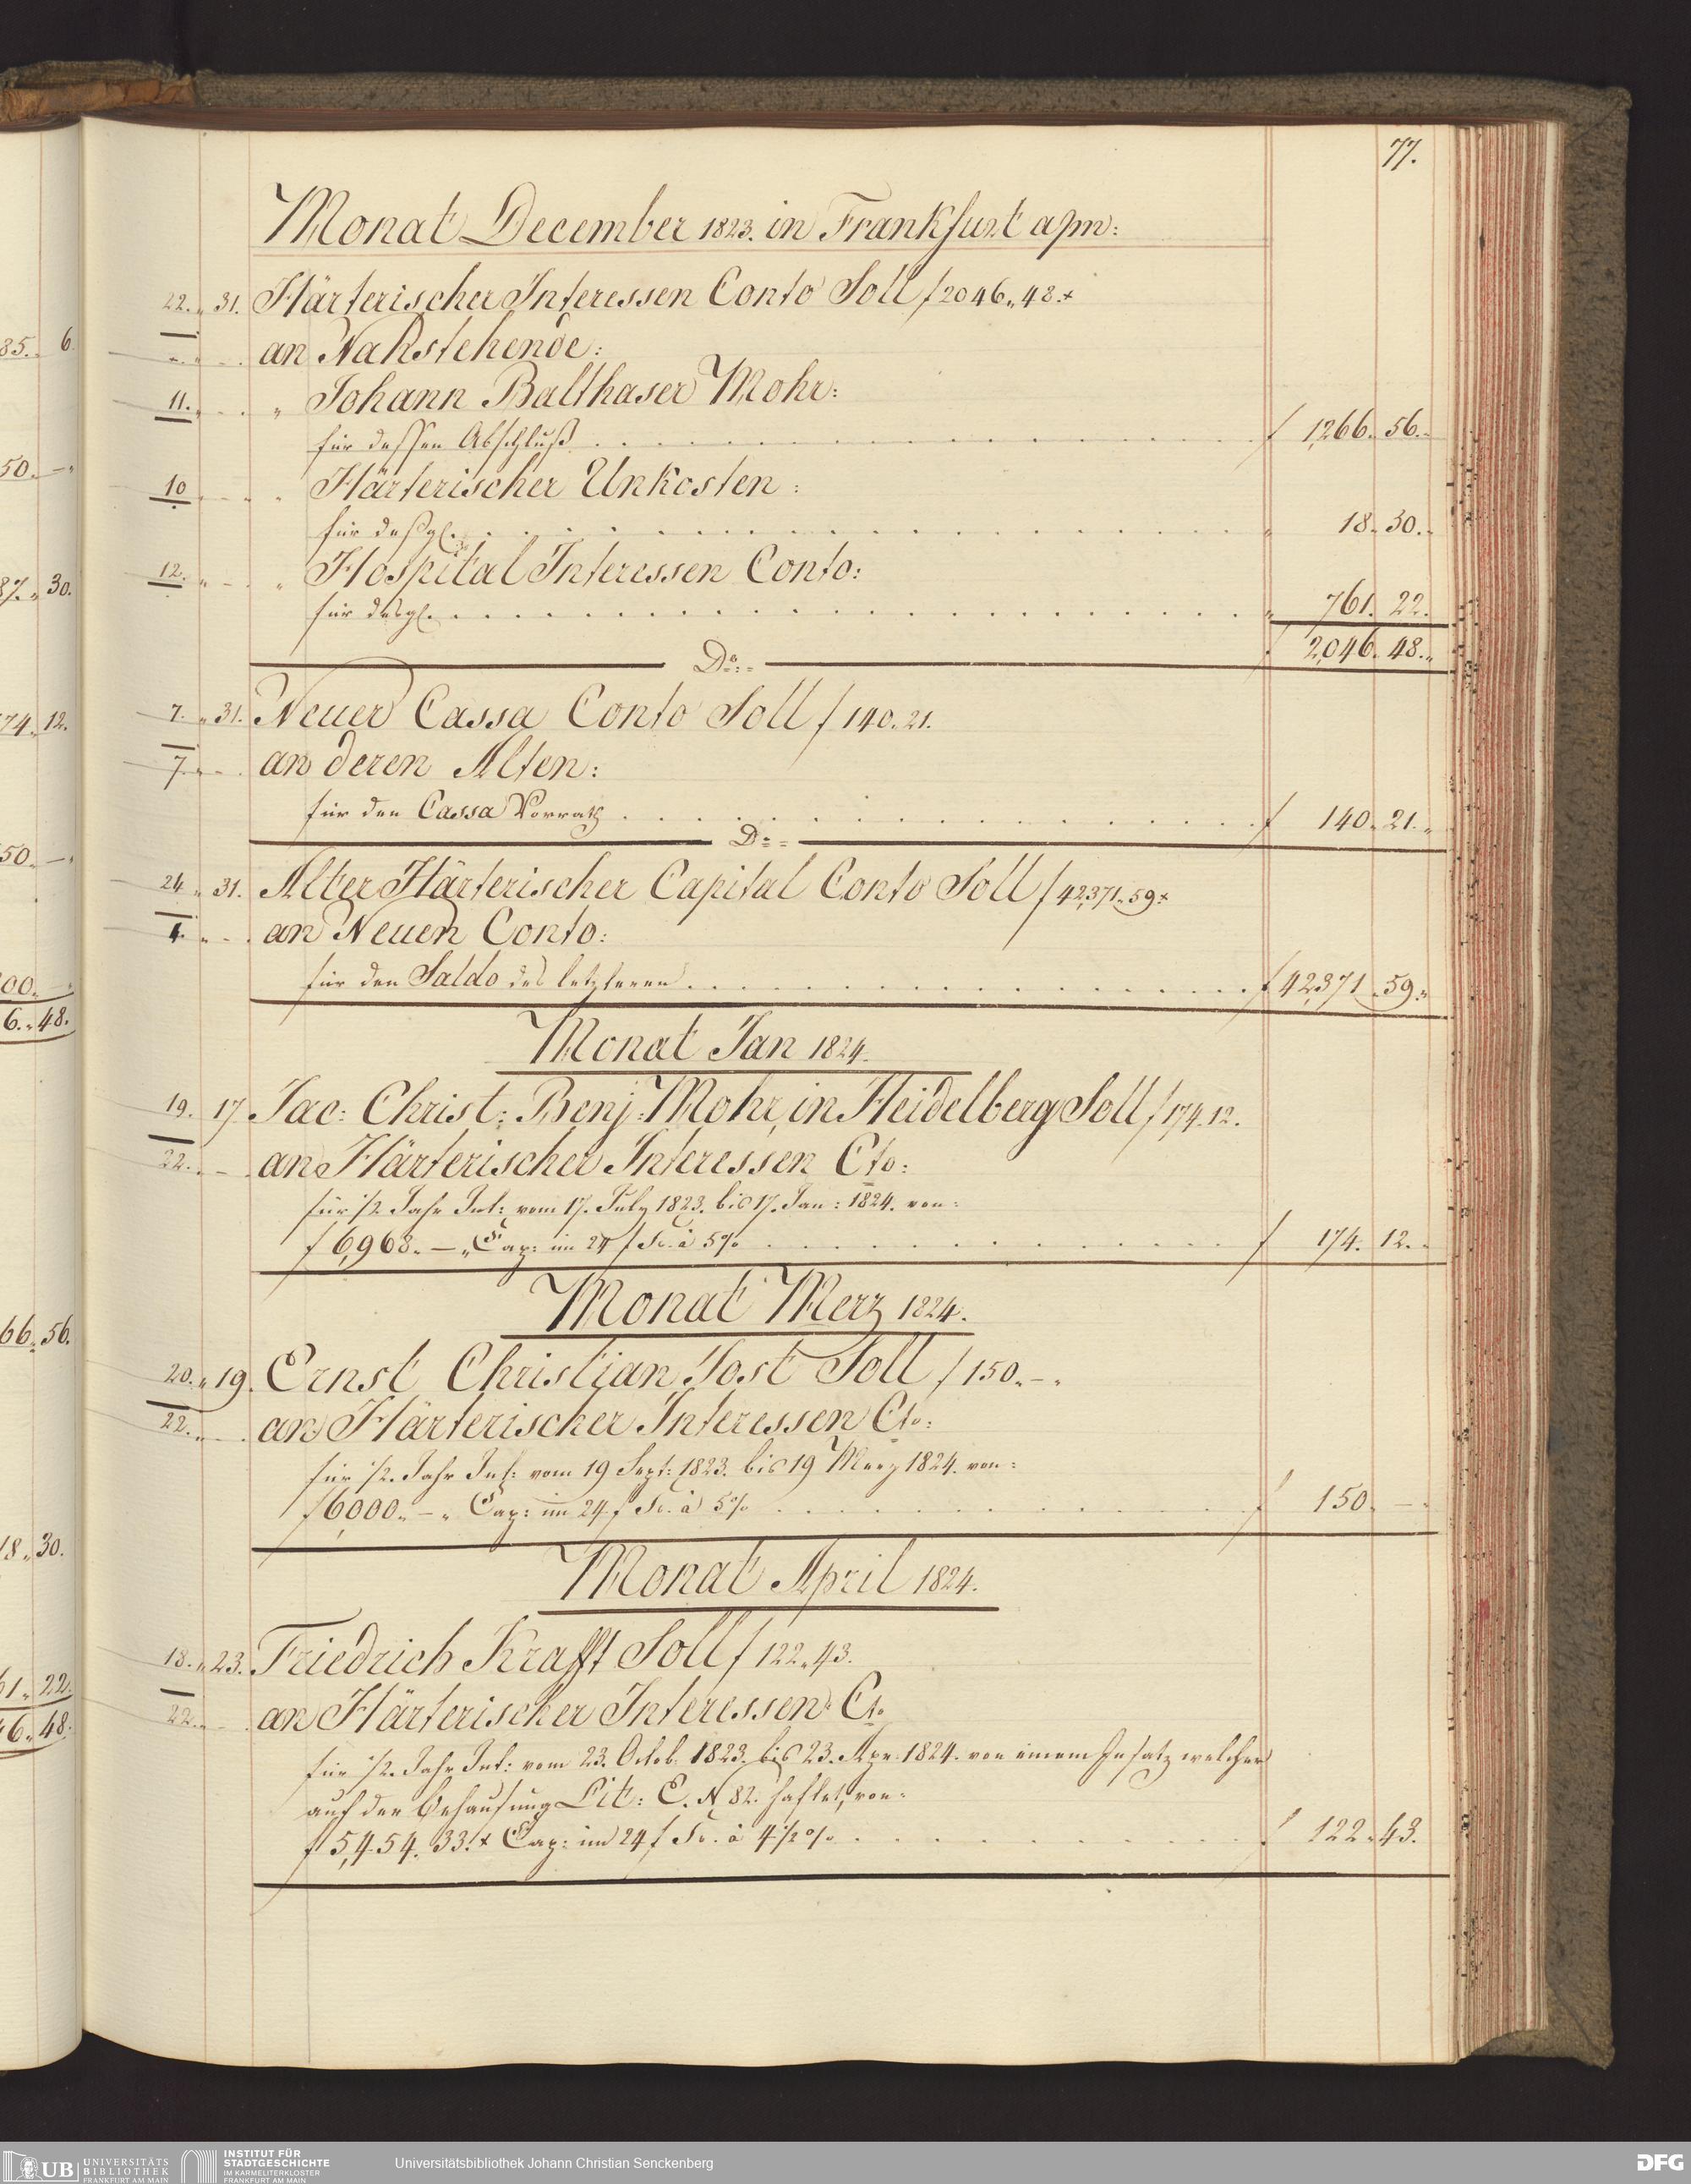 77.
Monat December 1823. in Frankfurt a/m:
22. „ 31. Härterischer Interessen Conto Soll f 2046„ 48 x
an Nahstehende:
11. „ Johann Balthaser Mohr:
für dessen Abschluß f 1,266„ 56.„
10 „ Härterischer Unkosten:
für deßgl. „ 18„ 30.„
12. „ Hospital Interessen Conto:
für desgl. „ 761. 22.
f 2,046„ 48.„
Do:
7. „ 31. Neuer Cassa Conto Soll f 140. 21.
7. an deren Alten:
für den Cassa Vorrath f 140„ 21.„
Do:
24 „ 31. Alter Härterischer Capital Conto Soll f 42,371„ 59 x
1. an Neuen Conto:
für den Saldo des letzteren f 42,371„ 59.„
Monat Jan 1824.
19. 17 Jac: Christ: Benj: Mohr, in Heidelberg Soll f 174. 12.
22. an Härterischer Interessen Cto:
für 1/2 Jahr Int: vom 17. July 1823. bis 17. Jan: 1824. von:
f 6,968. — „ Cap: im 24 f Fs. à 5% f 174. 12.
Monat Merz 1824.
20. „ 19. Ernst Christian Jost Soll f 150„ — „
22. an Härterischer Interessen Cto:
für 1/2. Jahr Int: vom 19 Sept: 1823. bis 19 Merz 1824. von:
f 6,000„ — „ Cap: im 24. f Fs. à 5% f 150. — „
Monat April 1824.
18. „ 23. Friedrich Krafft Soll f 122„ 43.
22. an Härterischer Interessen Cto
für 1/2. Jahr Int: vom 23. Octob. 1823. bis 23. Apr. 1824. von einem Insatz welcher
auf der Behausung Lit: E. N 82. haftet, von:
f 5,454. 33. x Cap: im 24 f Fs. à 4 1/2 % f 122„ 43.
85. 6
50. — „
87. „ 30.
74. 12.
50. — „
00. — „
6. „ 48.
66. 56.
18 „ 30.
61. „ 22.
46. „ 48.
UB UNIVERSITÄTS BIBLIOTHEK FRANKFURT AM MAIN
INSTITUT FÜR STADTGESCHICHTE IM KARMELITERKLOSTER FRANKFURT AM MAIN
Universitätsbibliothek Johann Christian Senckenberg
DFG